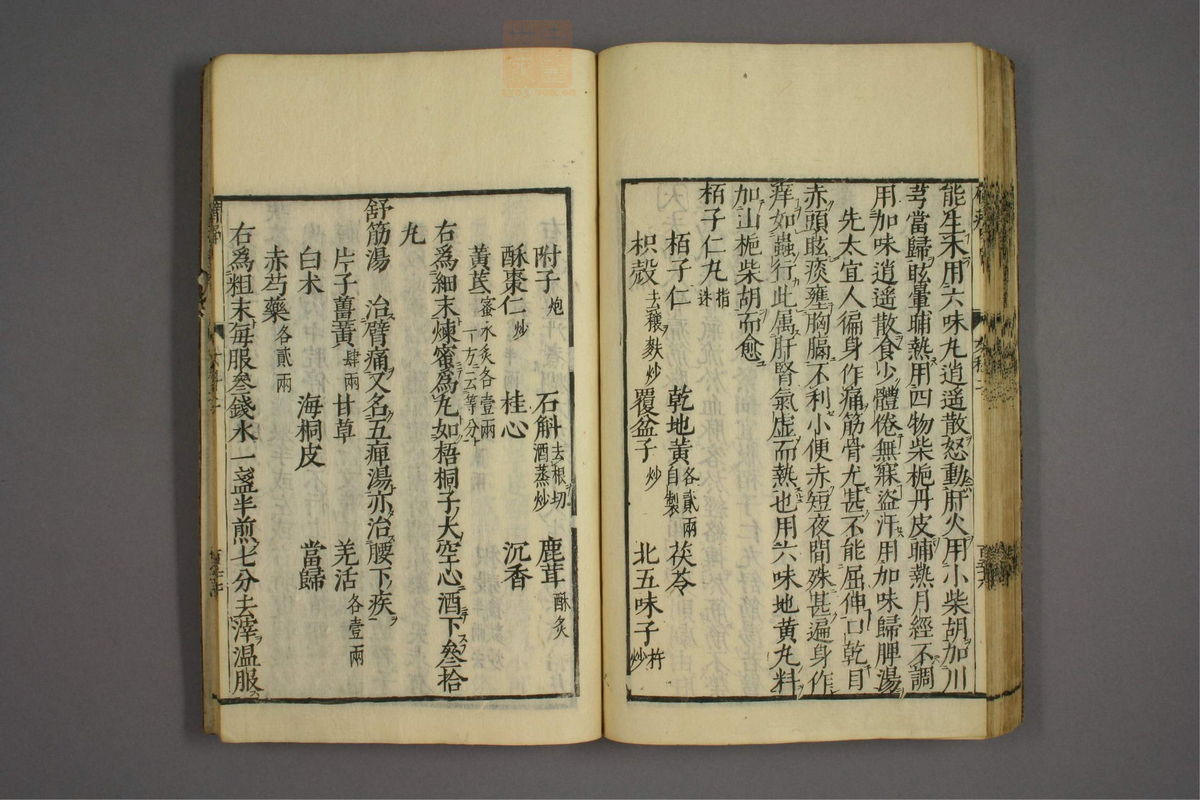 能生禾用六味丸逍遥散怒動肝火用小柴胡加川
芎當歸眩暈晡熱用四物柴梔丹皮晡熱月經不調
用加味逍遥散食少體倦無寐盗汗用加味歸脾湯
先太宜人徧身作痛筋骨尤甚不能屈伸口乾目
赤頭眩痰壅胸膈不利小便赤短夜間殊甚遍身作
痒如蟲行此属肝腎氣虚而熱也用六味地黄丸料
加山梔柴胡而愈
栢子仁丸 指迷
栢子仁 乾地黄 各貳兩自製 茯苓
枳殼 去穰麸炒 覆盆子 炒 北五味子 炒
附子 炮 石斛 去根切酒蒸炒 鹿茸 酥炙
酥棗仁 炒 桂心 沉香
黄芪 蜜水炙各壹兩一方云等分
右爲細末煉蜜爲丸如梧桐子大空心酒下叄拾
丸
舒筋湯 治臂痛又名五痺湯亦治腰下疾
片子薑黄 肆兩 甘草 羌活 各壹兩
白术 海桐皮 當歸
赤芍藥 各貳兩
右爲粗末每服叄錢水一盞半煎七分去滓温服